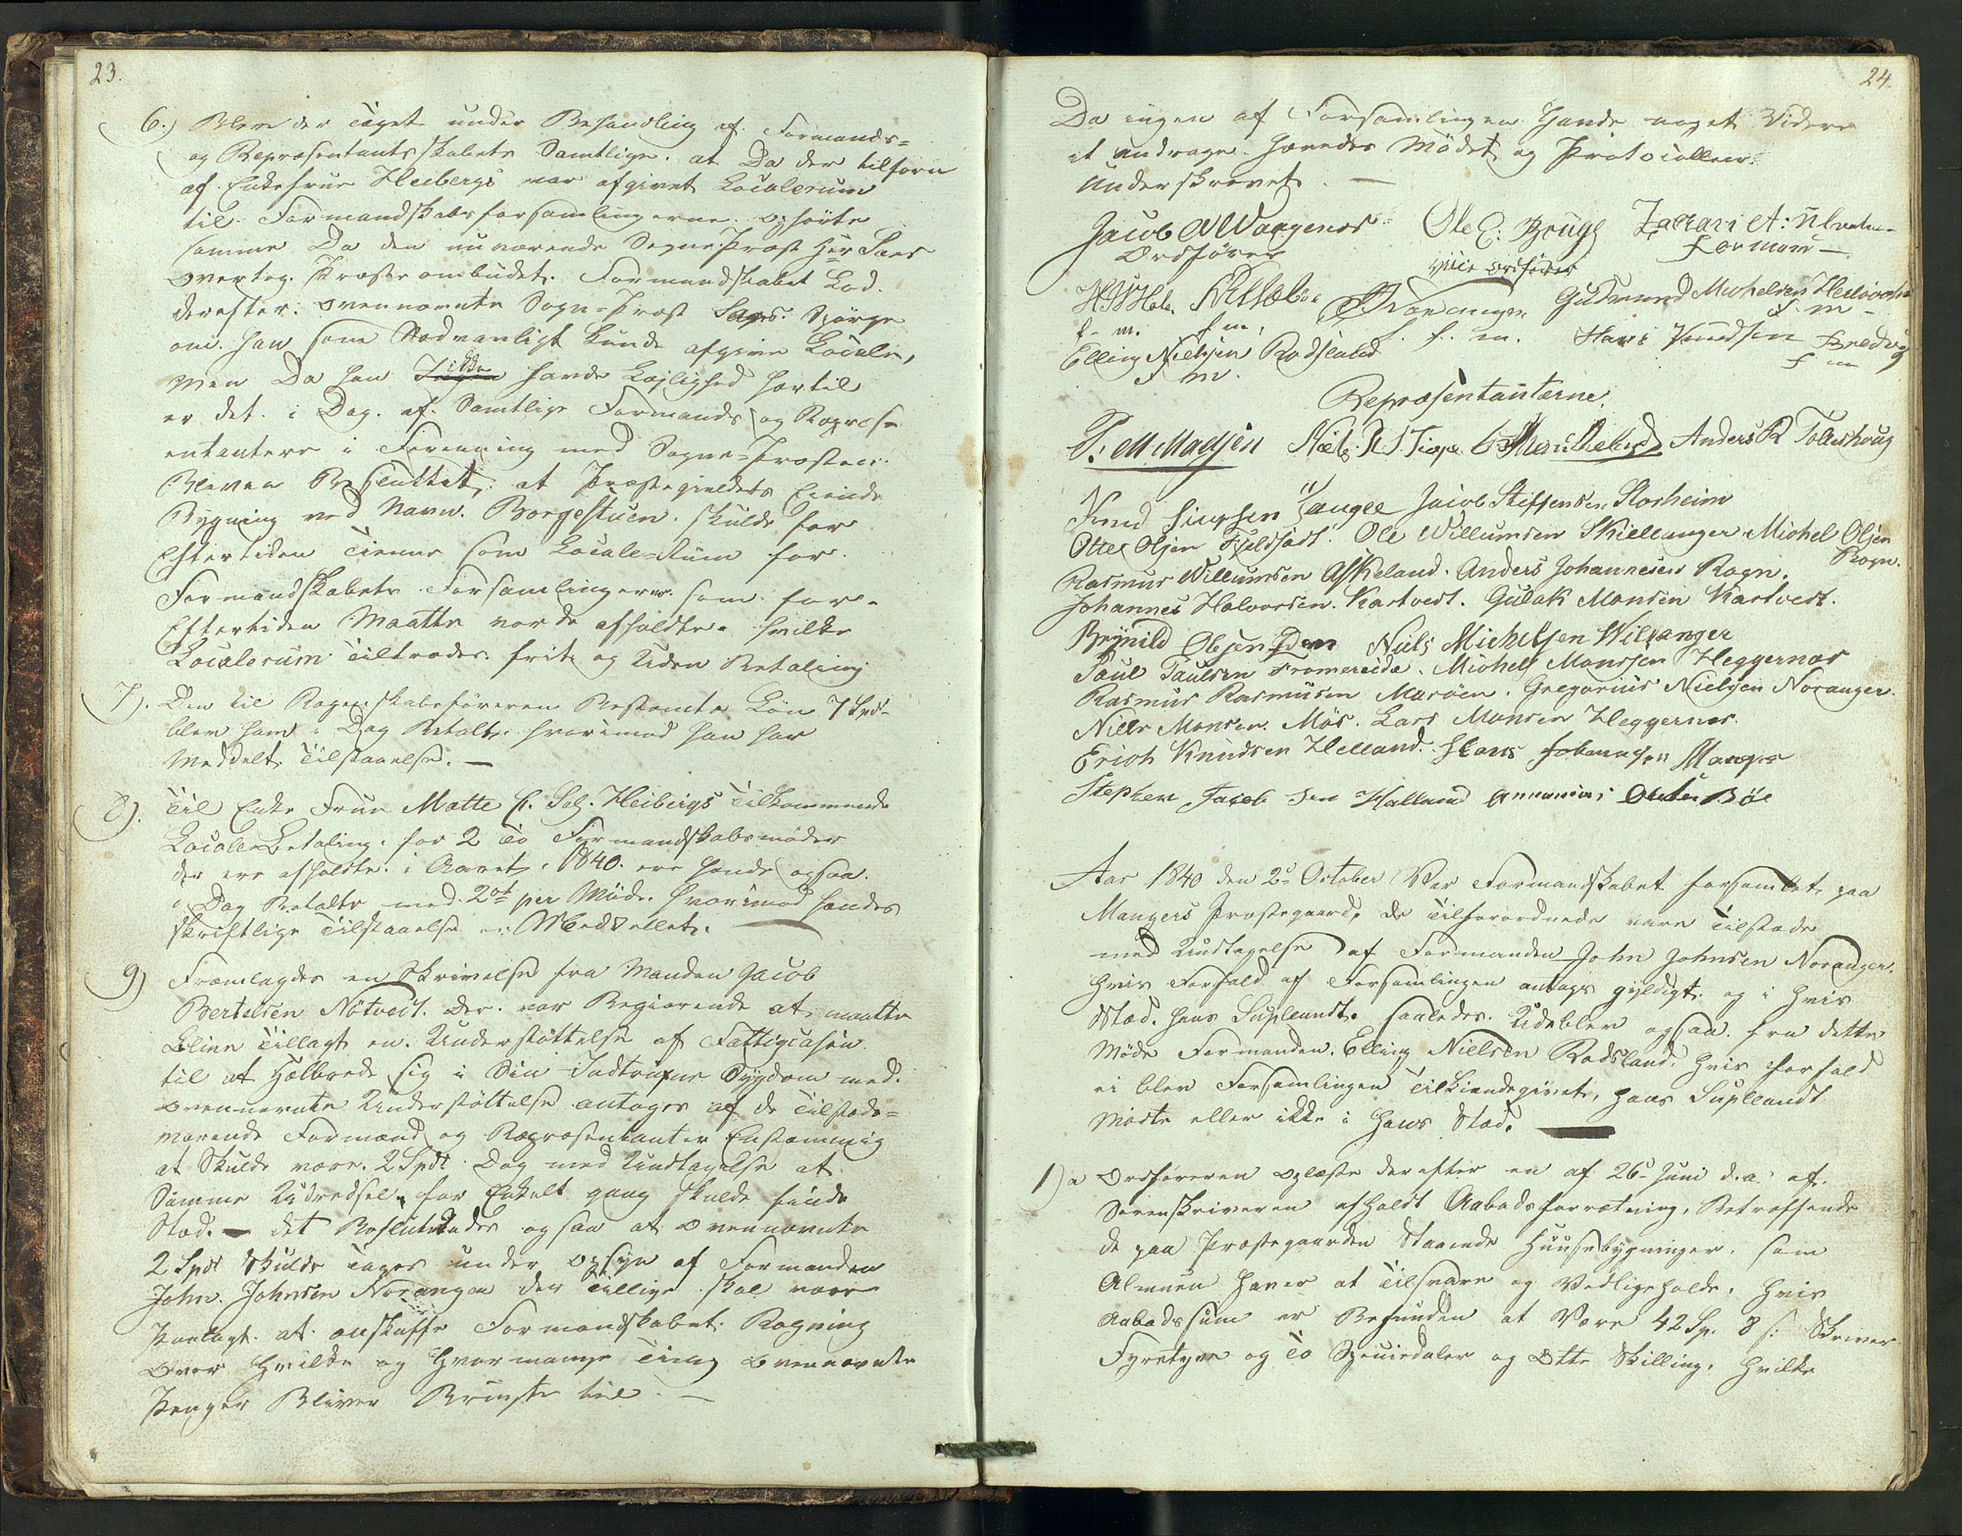 23.
6.) Blev der taget under Behandling af Formands-
og Repræsentantskabets Samtlige. at Da der tilforn
af Enkefrue Heibergs var afgivet Localerum
til Formandskabsforsamlingerne. ophørte
samme Da den nuværende SognePræst Herr Sars
overtog Præsteombudet. Formandskabet Lod
derefter. ovennævnte Sogne-Præst Sars. Spørge
om. han som Sædvanligt kunde afgive Locale,
Men Da han Ikke havde Lejlighed hertil
er det i Dag. af Samtlige Formænds og Repræse
entantere i Forening med Sogne-Præsten.
Bleven Besluttet, at Præstegieldets Eiende
Bygning ved Navn. Borgestuen. skulde for
Eftertiden Tiene som Locale-Rum for
Formandskabets Forsamlingerne som for
Eftertiden Maatte vorde afholdte. hvilke
Localerum tiltrædes. frit og Uden Betaling
7). Den til Regnskabsføreren Bestemte Løn 7 Spd-
blev ham i Dag Betalt. hvorimod han har
Meddelt Tilstaaelse. —
8). Til Enke Frue Mætte C. Sal. Heibergs Tilkommende
Locale Betaling. for 2 to Formandskabsmøder
der ere afholdte i Aaret 1840. ere hende ogsaa.
i Dag Betalte med 2 ort per Møde. hvorimod hendes
skriftlige Tilstaaelse er Meddellet. —
9) Fremlagdes en Skrivelse fra Manden Jacob
Bertelsen Nøtvedt. der. var Begierende at maatte
Blive Tillagt en. Understøttelse af Fattigcasen
til at Helbrede sig i Sin Indtrufne Sygdom med.
ovennævnte Understøttelse antoges af de Tilstæde-
værende Formænd og Repræsentanter Enstemmig
at Skulde være. 2 Spdl. Dog med Undtagelse at
Samme Udredsel for Enkelt gang skulde finde
Sted. — det Besluttedes ogsaa at ovennævnte
2 Spdl Skulde Tages under opsyn af Formanden
John. Johnsen Noranger der Tillige skal være
Paalagt. at anskaffe Formandskabet. Regning
Over Hvilke og Hvormange Ting ovennævnte
Penger Bliver Brugte til. —
24.
Da ingen af Forsamlingen Havde noget Videre
at andrage. Hævedes Mødet og Protocollen
Underskrevet. —
Jacob A Waagenes Ole E. Brugh Zackari A:
Ordfører Vice ordfører Formand —
Gudmund Michelsen
f. m. f m. f. m. f. m —
Elling Nielsen Rodsland Hans Knudsen
f m. f m
Repræsentanterne.
P. M Madsen Anders R Tolleshoug
Knud Jacob Steffensen Storheim
Otter Olsen Fjeldsædt. Ole Willumsen Skiellanger Michel Olsen
Rogn.
Rasmus Willumsen Askeland. Anders Johannesen Rogn.
Johannes Halvorsen. Kartvedt. Gulak Monsen Kartvedt.
Brynild Olsen Niels Michelsen Wilvanger
Paul Paulsen Fromereide. Michel Monssen Heggernæs
Rasmus Rasmusen Marøen. Gregorius Nielsen Noranger.
Niels Monsen. Møs. Lars Monsen Heggernæs.
Erich Knudsen Helland. Hans Johannessen Manger
Stephen Jacob sen Halland Annanias Olsen Bøe
Aar 1840 den 2de October Var Formandskabet forsamlet paa
Mangers Præstegaard, de Tilforordnede vare Tilstæde
med Undtagelse af Formanden John Johnsen Noranger.
Hvis Forfald af Forsamlingen antages gyldigt. og i Hvis
Sted. hans Supleandt. saaledes. Udeblev ogsaa. fra dette
Møde Formanden. Elling Nielsen Rodsland. Hvis Forfald
ei blev Forsamlingen Tilkiendegivet, hans Supleandt
Mødte eller ikke i Hans Sted. —
1) a Ordføreren oplæste derefter en af 26de Juni d. a. af.
Sorenskriveren afholdt Aabodsforretning. Betreffende
de paa Præstegaarden Staaende Huusebygninger. som
Almuen haver at Tilsvare og Vedligeholde. Hvis
Aabodssum er Befunden at Være 42 Sp. 8 s: Skriver
Fyrretyve og To Speciedaler og Otte Skilling. hvilke